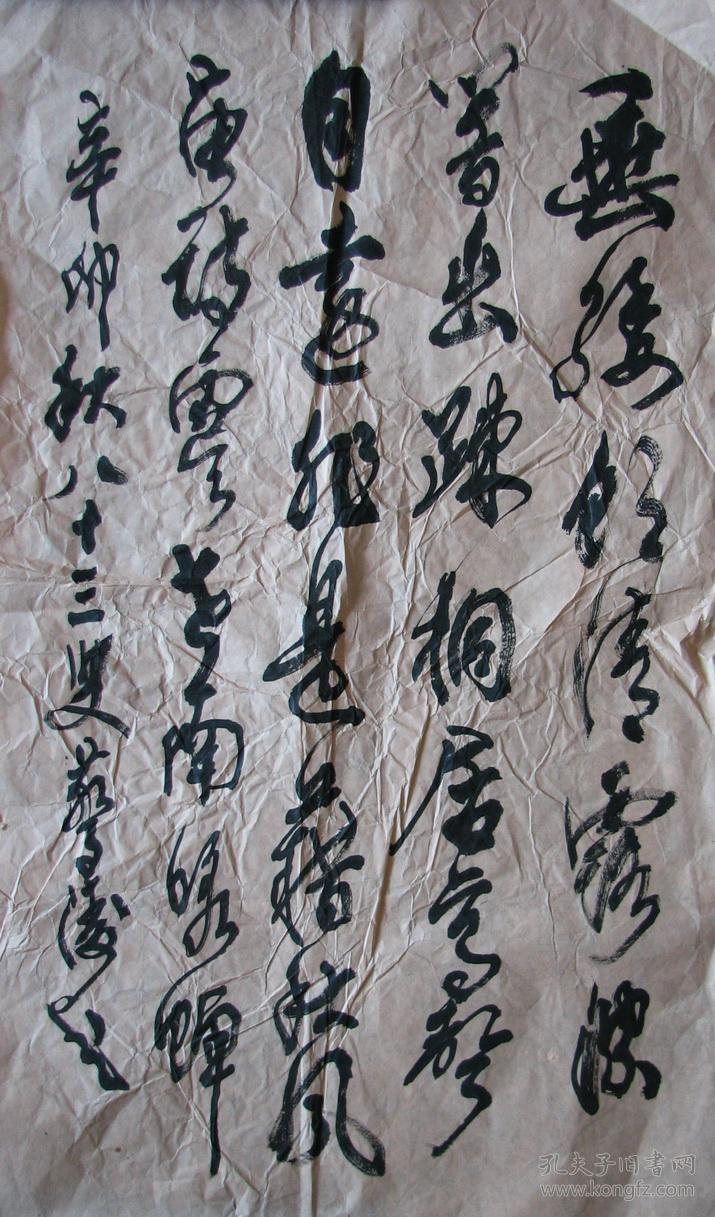 垂緌飲清露流
響出踈桐居高聲
自遠非是藉秋風
唐詩虞世南咏蟬
辛卯秋八十三叟書
孔夫子旧书网
www.kongfz.com